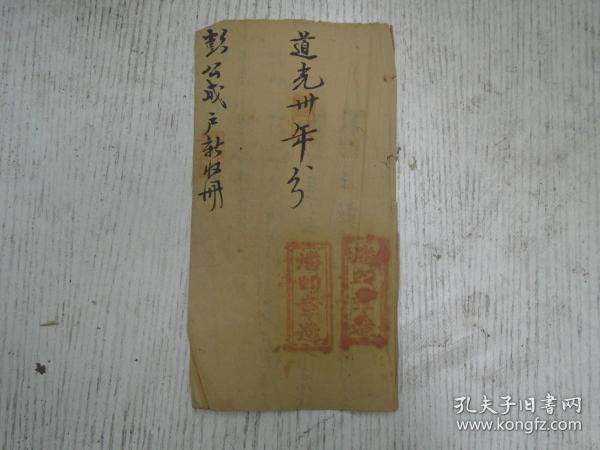 道光卅年分
彭公成户新收册
孔夫子旧书网
www.kongfz.com